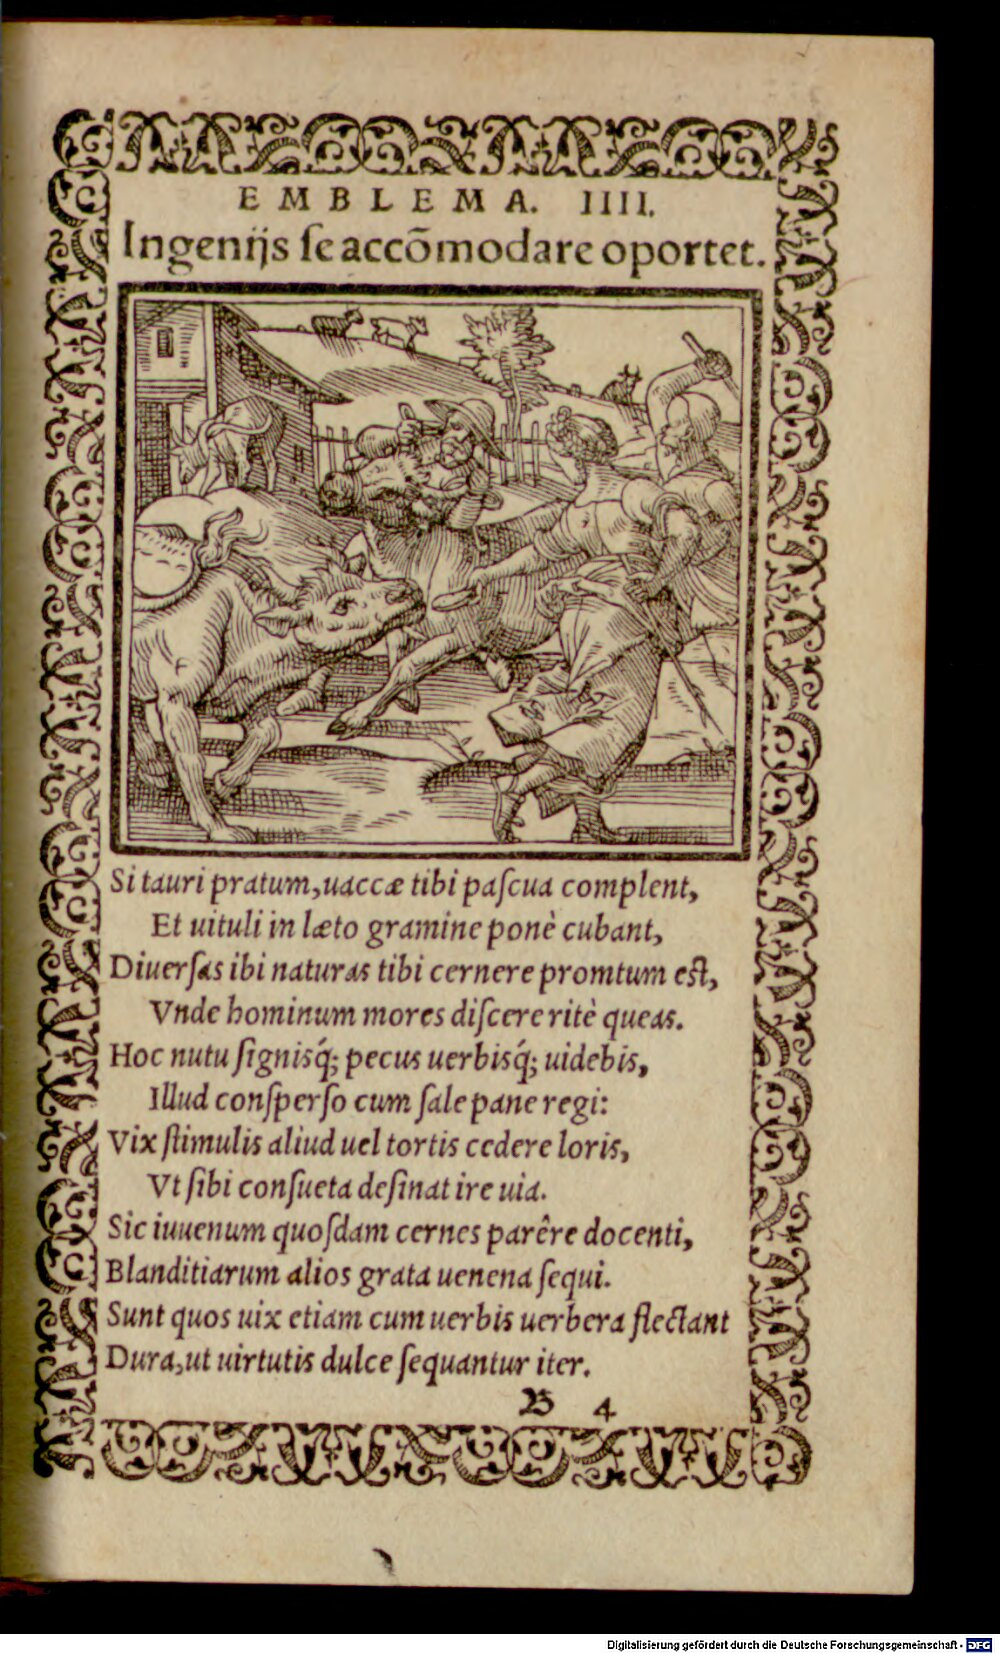 EMBLEMA. IIII.
Ingenijs ſe accõmodare oportet.
Si tauri pratum, uaccæ tibi paſcua complent,
Et uituli in læto gramine ponè cubant,
Diuerſas ibi naturas tibi cernere promtum est,
Vnde hominum mores diſcere ritè queas.
Hoc nutu ſignisq́; pecus uerbisq́; uidebis,
Illud conſperſo cum ſale pane regi:
Vix ſtimulis aliud uel tortis cedere loris,
Vt ſibi conſueta deſinat ire uia.
Sic iuuenum quoſdam cernes parêre docenti,
Blanditiarum alios grata uenena ſequi.
Sunt quos uix etiam cum uerbis uerbera flectant
Dura, ut uirtutis dulce ſequantur iter.
B 4
Digitalisierung gefördert durch die Deutsche Forschungsgemeinschaft - DFG